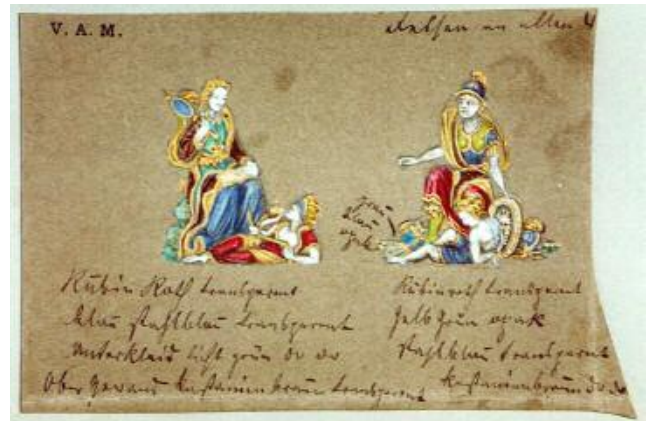 V. A. M.
an allen 4
grün
blau
opak
Rubin Roth transparent
blau stahlblau transparent
Unterkleid licht grün do do
Ober Gewand kastanienbraun transparent
Rubinroth transparent
gelb grün opak
Stahlblau transparent
kastanienbraun do do